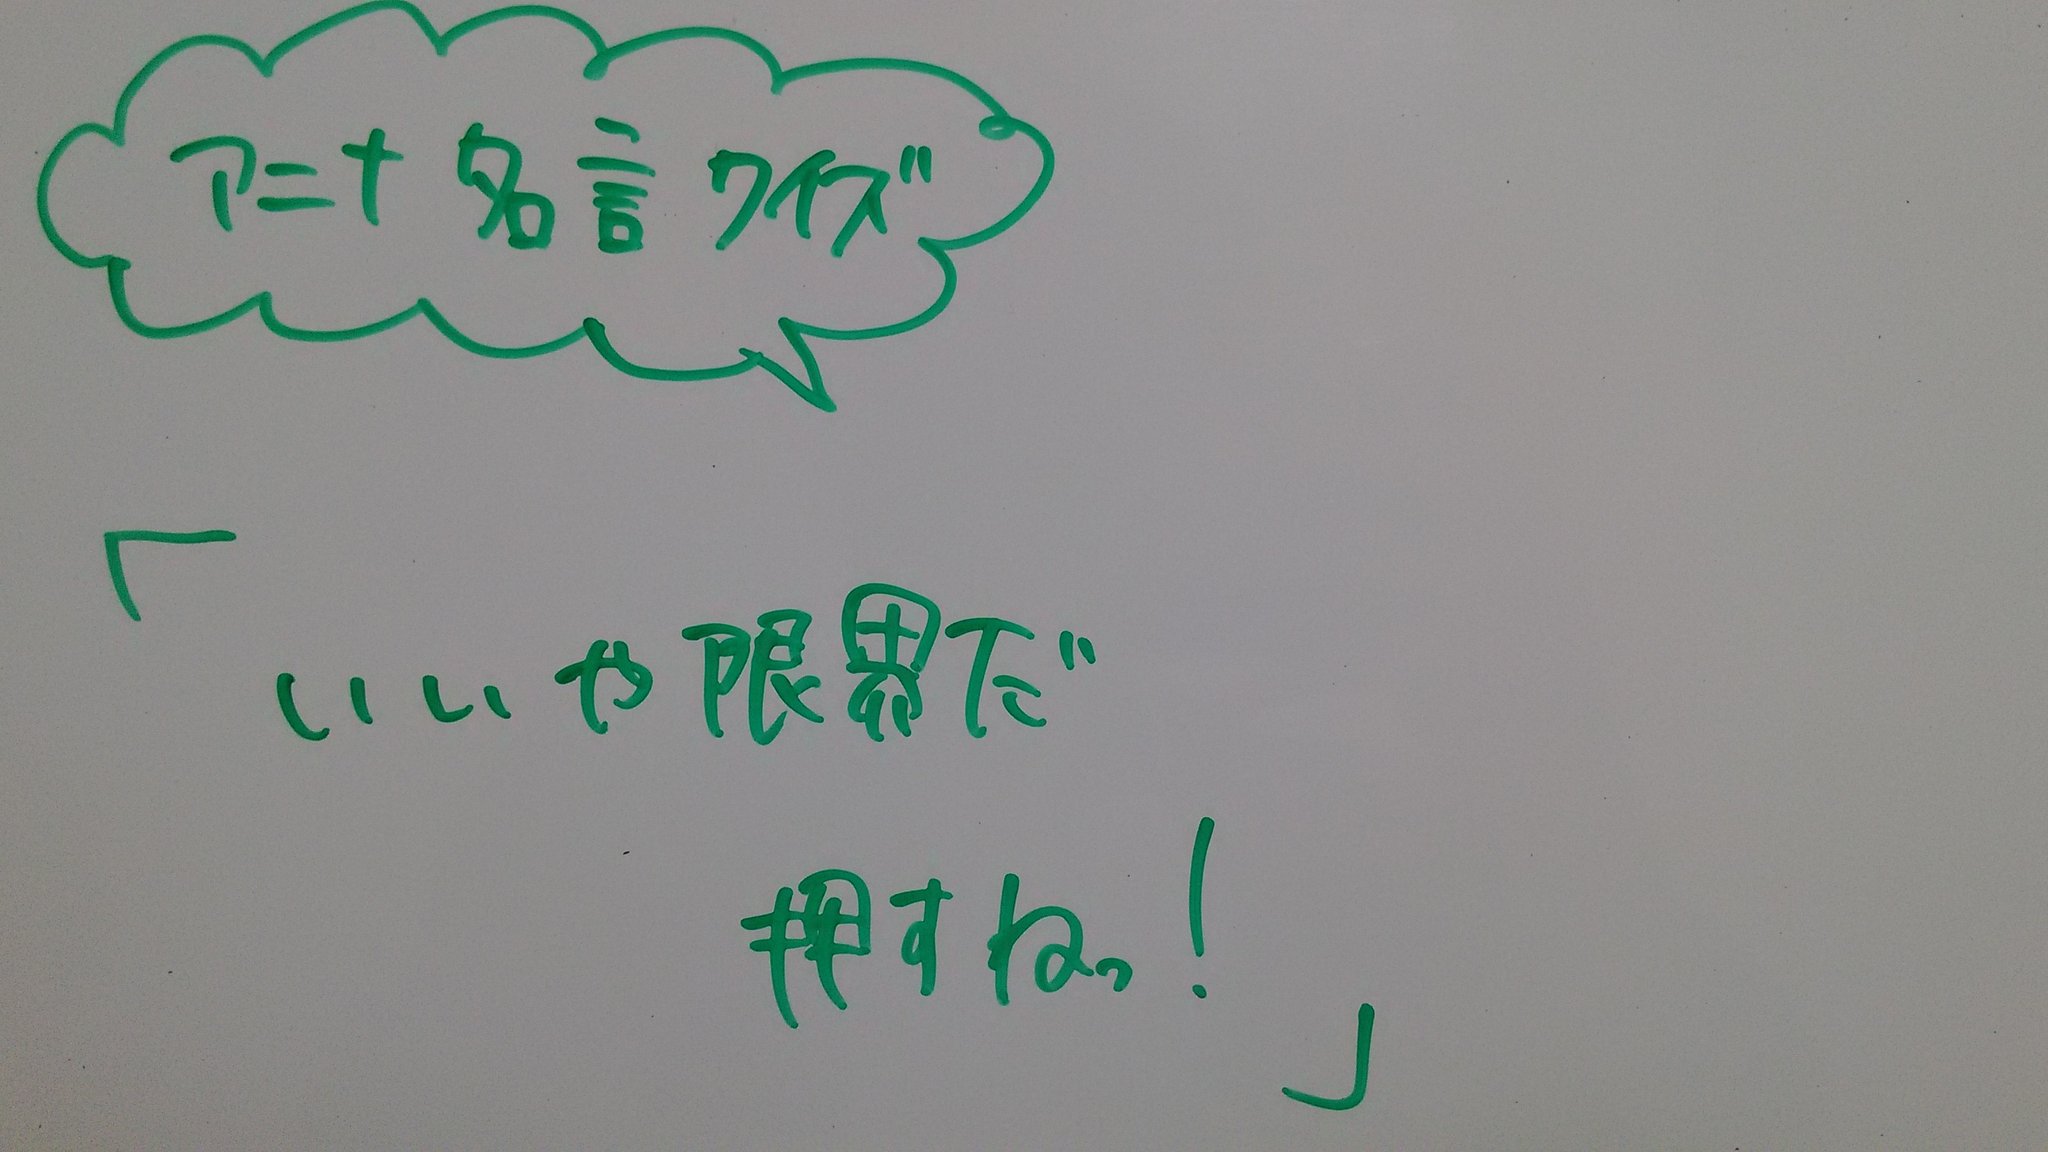 アニメ名言クイズ
「いいや限界だ
押すねっ!」